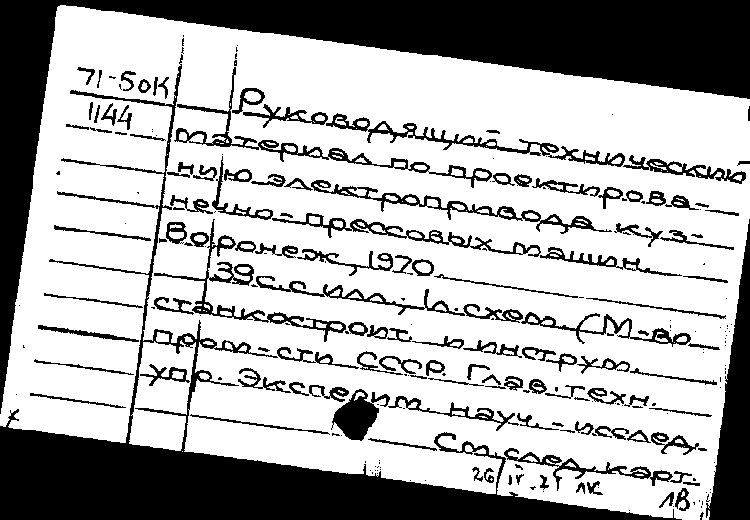 71-50К
1144
Руководящий технический
материал по проектирова-
нию электропривода куз-
нечно-прессовых машин.
Воронеж, 1970.
39с. с илл.; 1л.схем. (М-во
станкостроит. и инструм.
пром-сти СССР. Глав. техн.
упр. Эксперим. науч.-исслед.
См. след. карт.
26/IV-71 ЛК
ЛВ